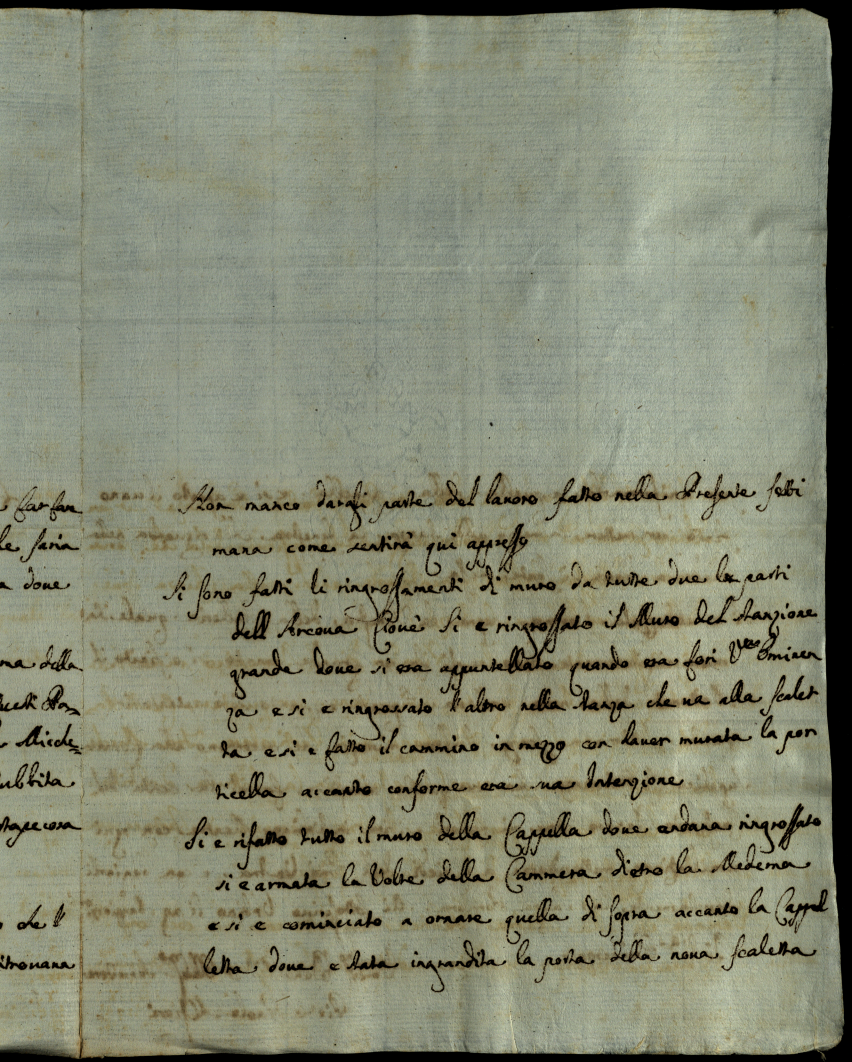 far fare
le saria
a doue
ma della
li
ubbita
cosa
o che l'
itrouaua
Non manco dargli parte del lauoro fatto nella Presente setti
mana come sentirà qui appresso
Si sono fatti li ringrossamenti di muro da tutte due le parti
dell Arcoua Ciouè Si e ringrossato il Muro del stanzione
grande doue si era appuntellato quando era fori Vra Eminen
za e si e ringrossato l'altro nella stanza che ua alla scalet
ta e si e fatto il cammino in mezzo con hauer murata la por
ticella accanto conforme era sua Intenzione
Si e rifatto tutto il muro della Cappella doue andaua ringrossato
si e armata la Volta della Cammera dietro la Medema
e si e cominciato a ornare quella di sopra accanto la Cappel
letta doue e stata ingrandita la porta della noua scaletta